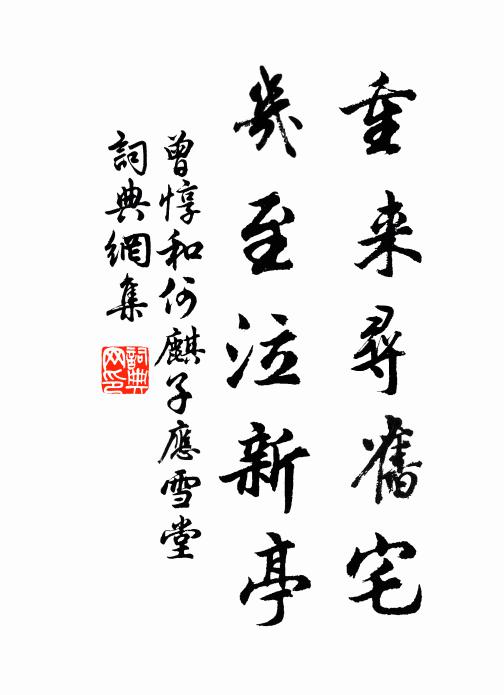 重来尋舊宅
幾至泣新亭
曾惇和何麒子應雪堂
詞典網集
詞典网印